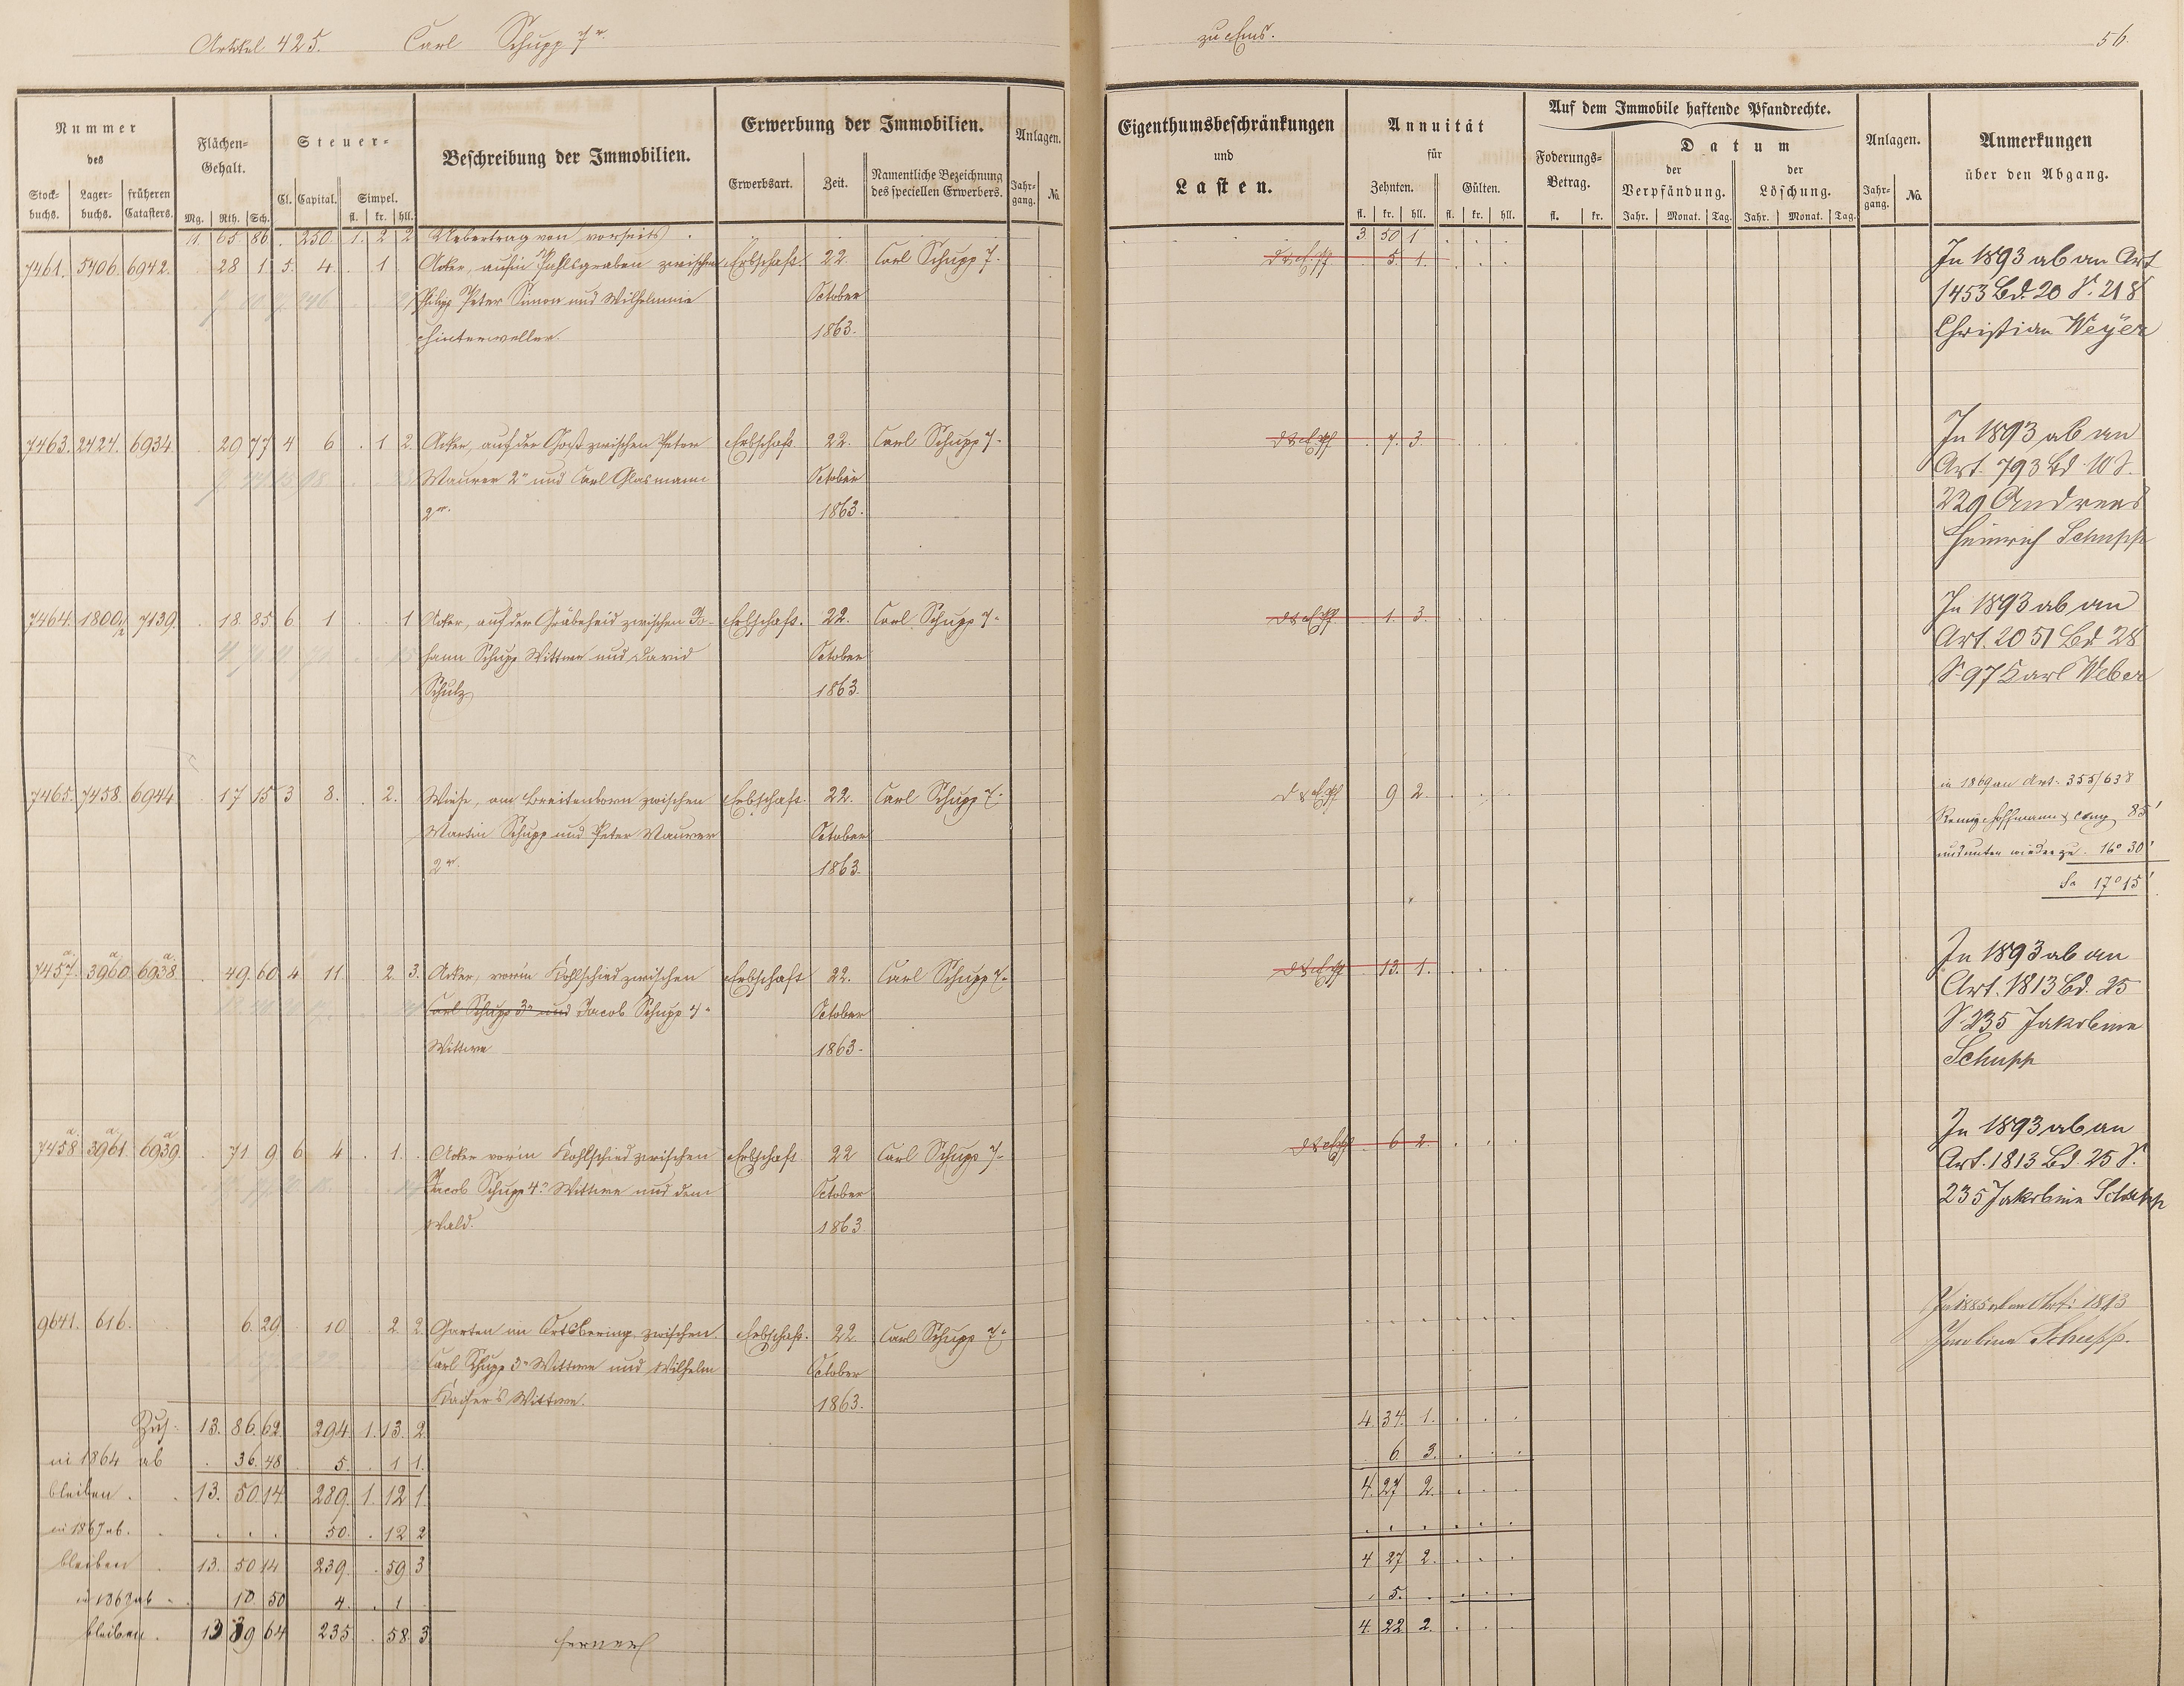 Artikel 425. Carl Schupp 7r. zu Ems. 56.
Nummer des
Stockbuchs. Lagerbuchs. früheren Catasters.
Flächen-Gehalt.
Mg. Rth. Sch.
Steuer-
Cl. Capital. Simpel.
fl. kr. hll.
Beschreibung der Immobilien.
Erwerbung der Immobilien.
Erwerbsart. Zeit. Namentliche Bezeichnung des speciellen Erwerbers.
Anlagen.
Jahrgang. No.
Eigenthumsbeschränkungen
und
Lasten.
Annuität
für
Zehnten. Gülten.
fl. kr. hll. fl. kr. hll.
Auf dem Immobile haftende Pfandrechte.
Foderungs-Betrag.
fl. kr.
Datum
der Verpfändung. der Löschung.
Jahr. Monat. Tag. Jahr. Monat. Tag.
Anlagen.
Jahrgang. No.
Anmerkungen
über den Abgang.
11. 65 86 . 250. 1. 2 2 Uebertrag von vorseits . 3 50 1
7461. 5406. 6942. 28 1 5. 4. . 1 Acker, auf'm Pfahlsgraben zwischen Erbschaft. 22. Carl Schupp 7r 5. 1. In 1893 ab an Art
Philipp Peter Simon und Wilhelmine October 1453 Bd. 20 S. 218
Hinterweller. 1863. Christian Weyer
7463. 2424. 6934 . 29 77 4 6 . 1 2. Acker, auf der zwischen Peter Erbschaft 22. Carl Schupp 7r 7. 3. In 1893 ab an
Maurer 2r und Carl Glasmann October Art. 793 Bd. 10 S.
2r. 1863. 220 Andreas
Heinrich Schupp
7464. 1800 7139. . 18. 85 6 1 . . 1 Acker, auf der Gräbeheid zwischen Jo- Erbschaft. 22. Carl Schupp 7r 1. 3. In 1893 ab an
hann Schupp Wittwe und David October Art. 2051 Bd. 28
Schulz 1863. S. 97 Karl Weber
7465. 7458. 6944 . 17 15 3 8. . 2. Wiese, am Breitenborn zwischen Erbschaft. 22. Carl Schupp 7r 9 2. in 1869 an Art. 355/638
Martin Schupp und Peter Maurer October Remy, Hoffmann & Comp. 85'
2r. 1863. und unten wieder zu . 16° 30'
Sa 17° 15'
7457.a 3960a 6938.a . 49. 60 4 11. . 2 3. Acker, vorn'm Kohlschied zwischen Erbschaft 22. Carl Schupp 7r 13. 1. In 1893 ab an
Carl Schupp 3r und Jacob Schupp 4r October Art. 1813 Bd. 25
Wittwe 1863. S. 235 Jakobine
Schupp
7458a 3961.a 6939.a . 71 9 6 4 . 1. . Acker vorn'm Kohlschied zwischen Erbschaft 22 Carl Schupp 7r 6 2. In 1893 ab an
Jacob Schupp 4r Wittwe und dem October Art. 1813 Bd. 25 S.
Wald. 1863. 235 Jakobine Schupp
9641. 616. 6. 29 . 10 . 2 2. Garten im Ortsbering zwischen Erbschaft. 22. Carl Schupp 7r In 1885 ab an Art: 1813
Carl Schupp 3r Wittwe und Wilhelm October Jacobine Schupp.
Kaiser's Wittwe. 1863.
Zus: 13. 86. 62. 294. 1. 13. 2. 4. 34. 1.
in 1864 ab . 36. 48 5. . 1 1. . 6. 3.
bleiben . 13. 50 14 289. 1. 12 1. 4. 27 2.
in 1867 ab. . . . 50. . 12 2
bleiben 13. 50 14 239. . 59 3 4 27 2.
in 1869 ab . 10. 50 4. . 1 . 5.
bleiben . 13 39 64 235. . 58. 3. ferner 4. 22 2.